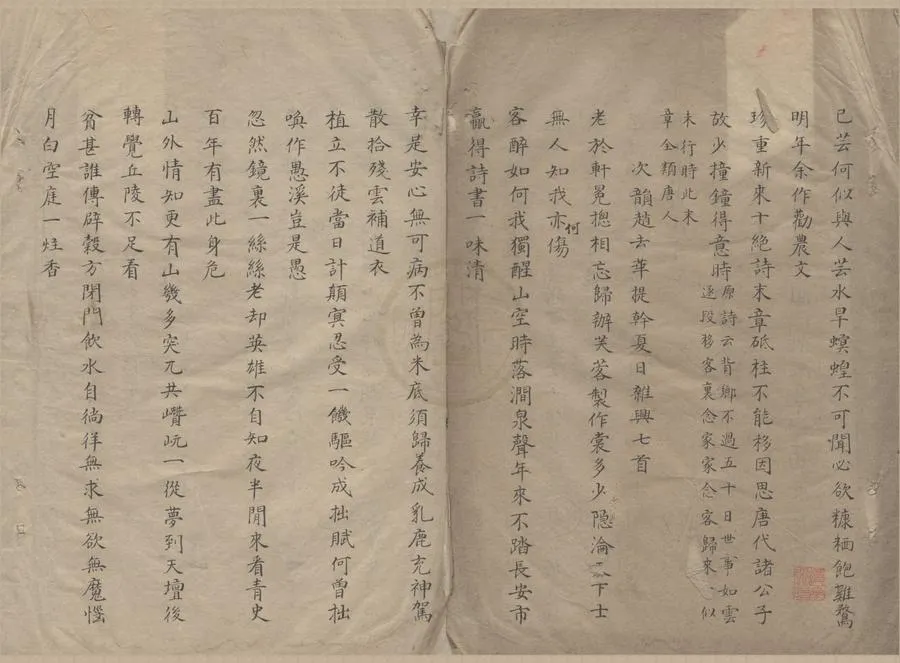 己芸何似與人芸水旱螟蝗不可聞必欲糠粞飽雞鶩
明年余作勸農文
珍重新來十絕詩末章砥柱不能移因思唐代諸公子
故少撞鐘得意時
原詩云背鄉不過五十日世事如雲
逐段移客裏念家家念客歸來、似
未行時此末
章全類唐人
次韻趙去華提幹夏日雜興七首
老於軒冕摠相忘歸辦芙蓉製作裳多少隐淪下士
無人知我亦何傷
客醉如何我獨醒山空時落澗泉聲年來不踏長安市
贏得詩書一味清
幸是安心無可病不曾為米底須歸養成乳鹿充神駕
散拾殘雲補道衣
植立不徒當日計顛冥忍受一饑驅吟成拙賦何曾拙
喚作愚溪豈是愚
忽然鏡裏一絲絲老却英雄不自知夜半閒來看青史
百年有盡此身危
山外情知更有山幾多突兀共巑岏一從夢到天壇後
轉覺丘陵不足看
貧甚誰傳辟穀方閉門飲水自徜徉無求無欲無魔惱
月白空庭一炷香